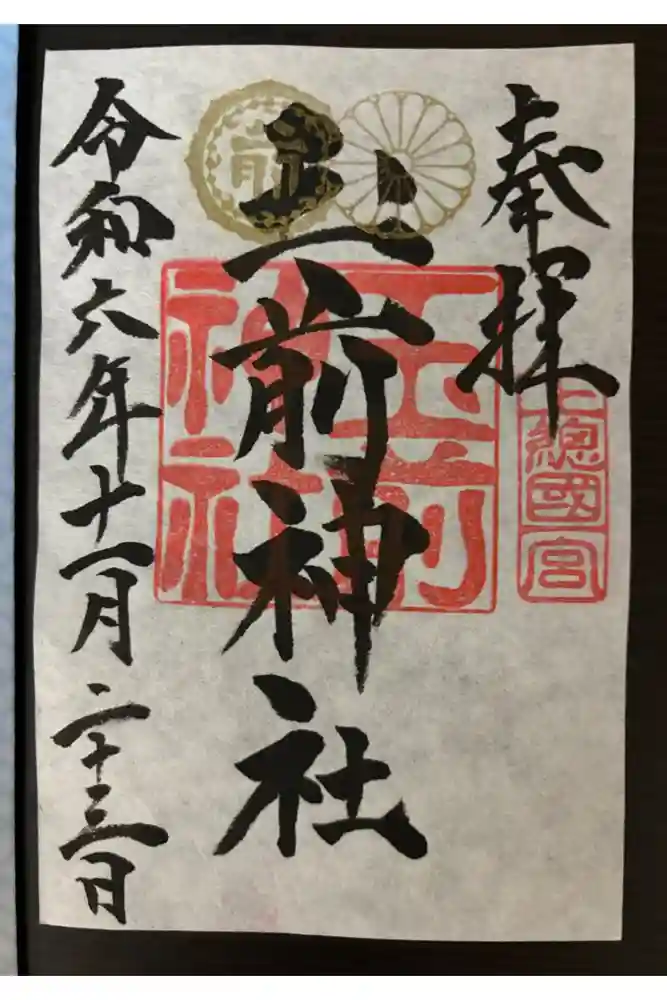 奉拝
上總國一宮
玉前神社
玉前
神社
前
令和六年十一月二十三日